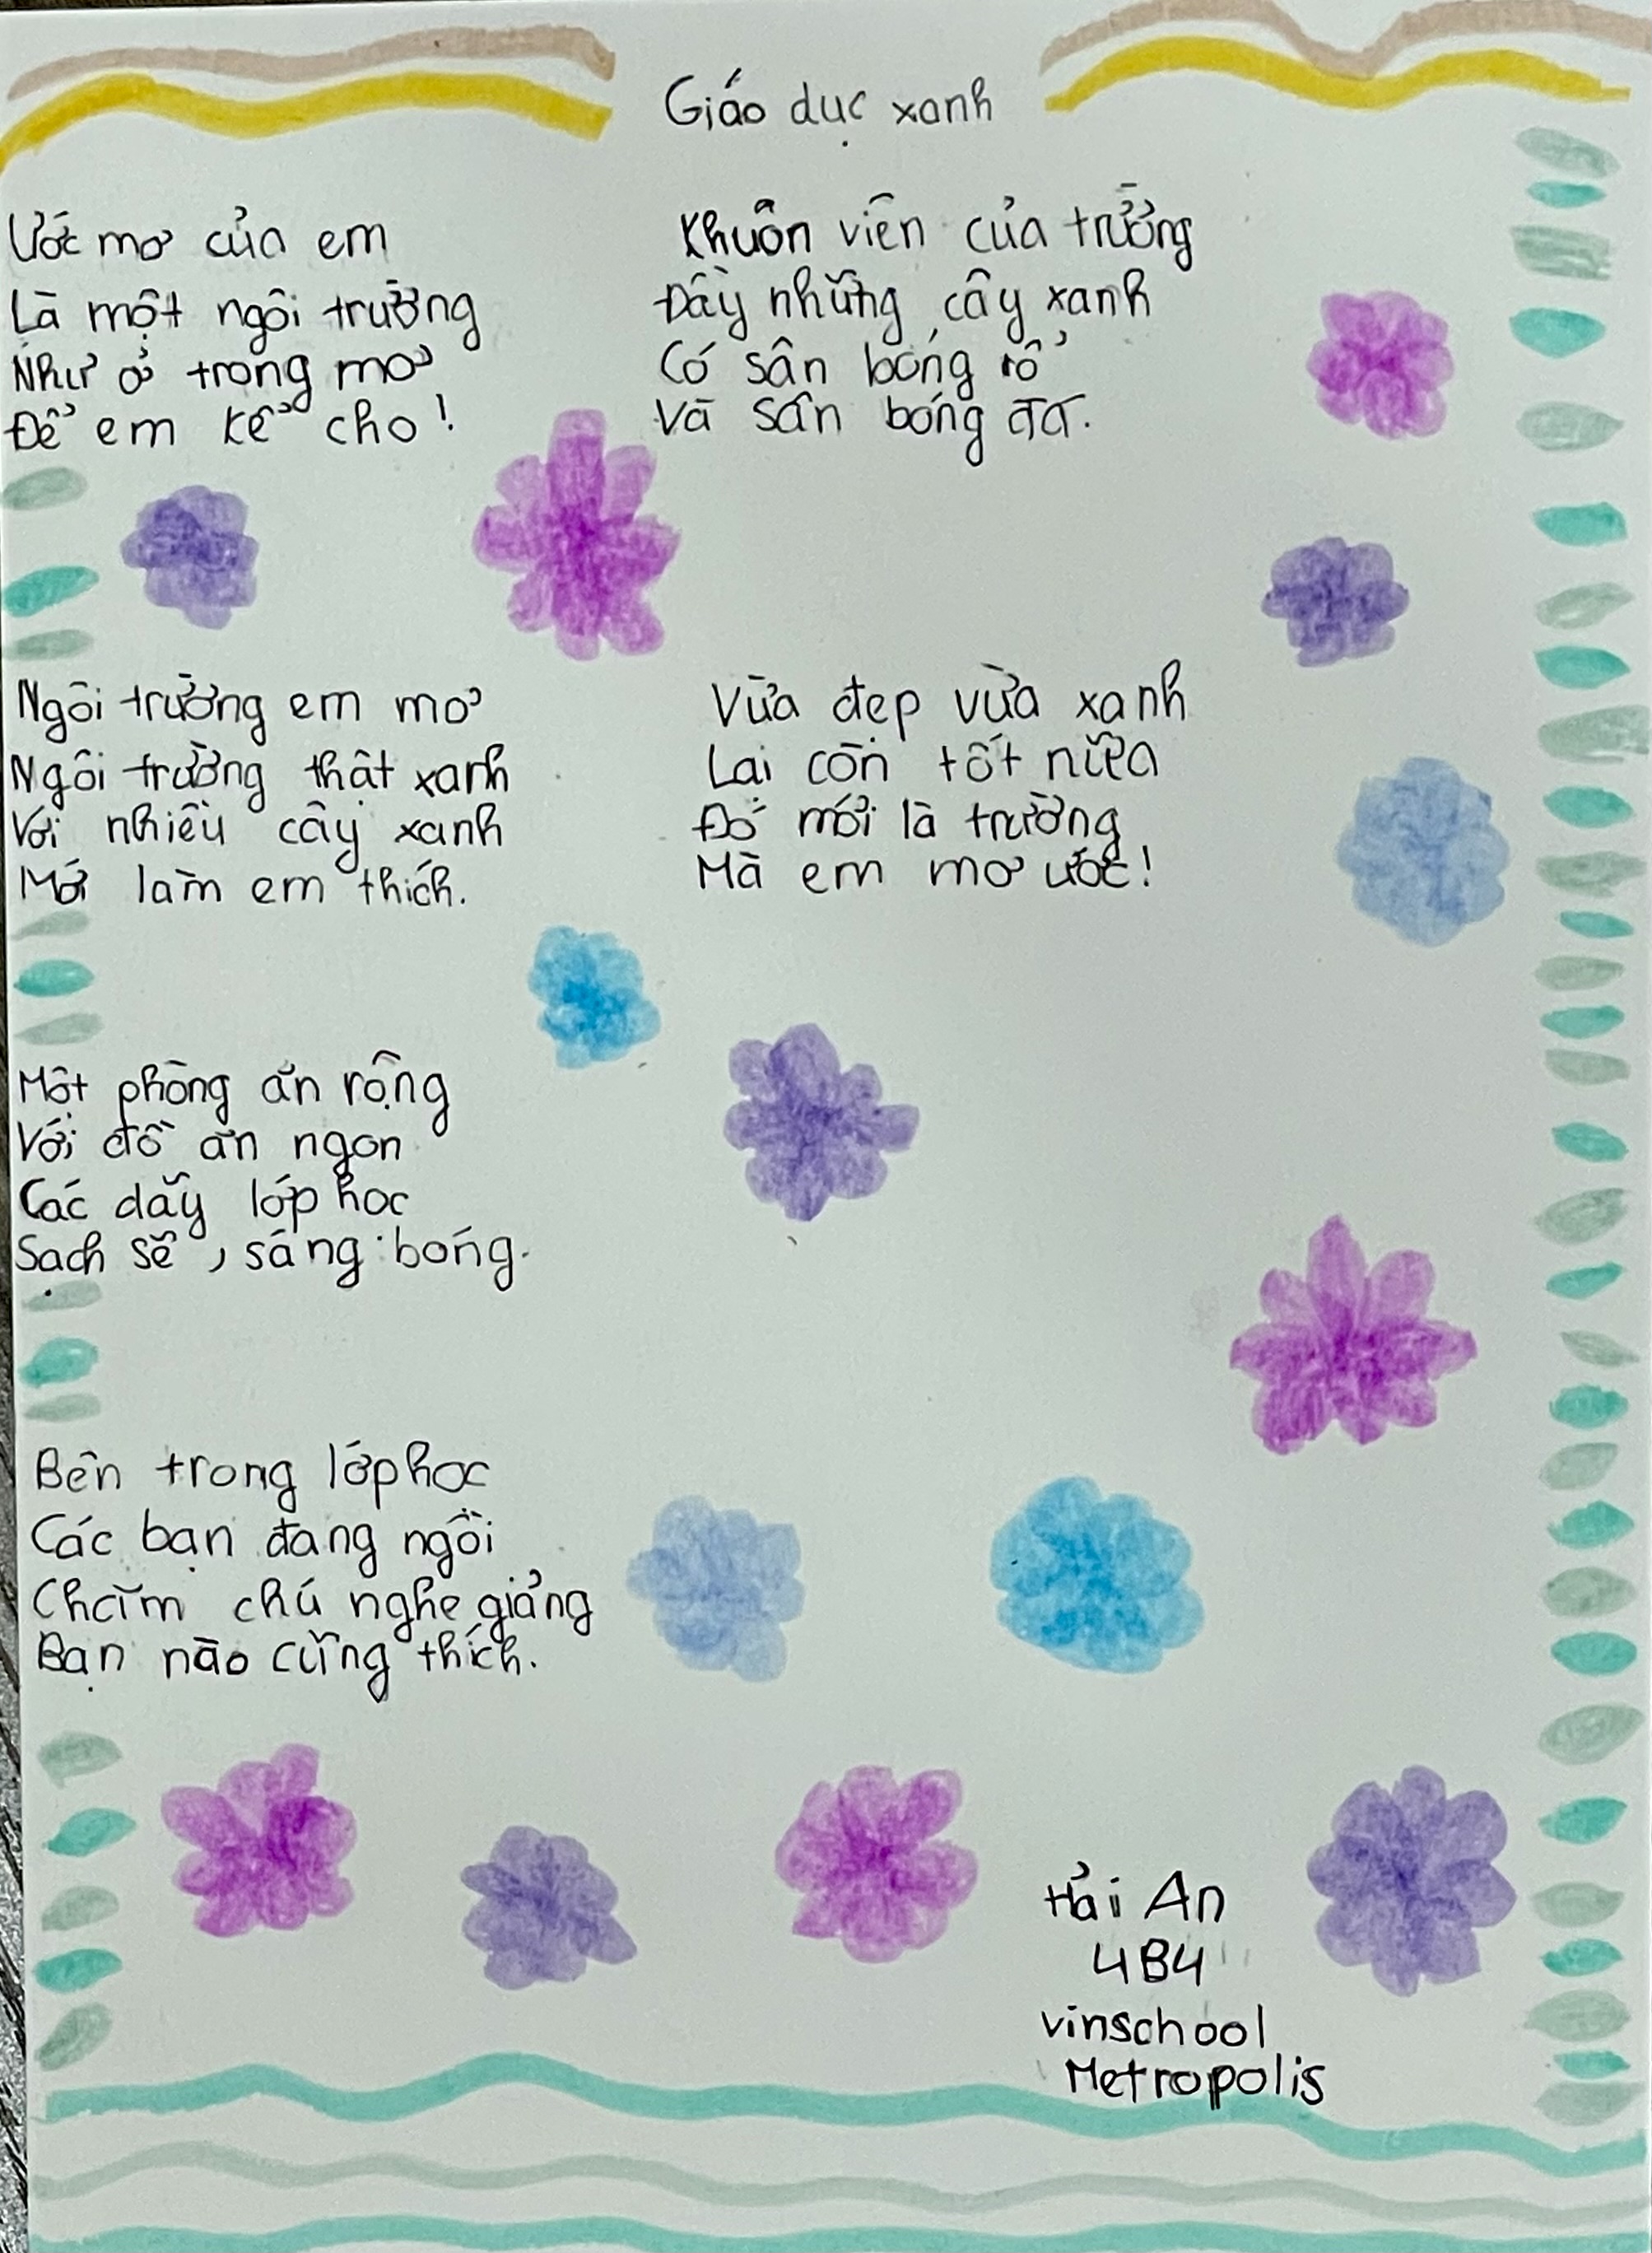 Giáo dục xanh
Ước mơ của em
Là một ngôi trường
Như ở trong mơ
Để em kể cho!
Ngôi trường em mơ
Ngôi trường thật xanh
Với nhiều cây xanh
Mới làm em thích.
Một phòng ăn rộng
Với đồ ăn ngon
Các dãy lớp học
Sạch sẽ, sáng bóng.
Bên trong lớp học
Các bạn đang ngồi
Chăm chú nghe giảng
Bạn nào cũng thích.
Khuôn viên của trường
Đầy những cây xanh
Có sân bóng rổ
Và sân bóng đá.
Vừa đẹp vừa xanh
Lại còn tốt nữa
Đó mới là trường
Mà em mơ ước!
Hải An
4B4
vinschool
Metropolis